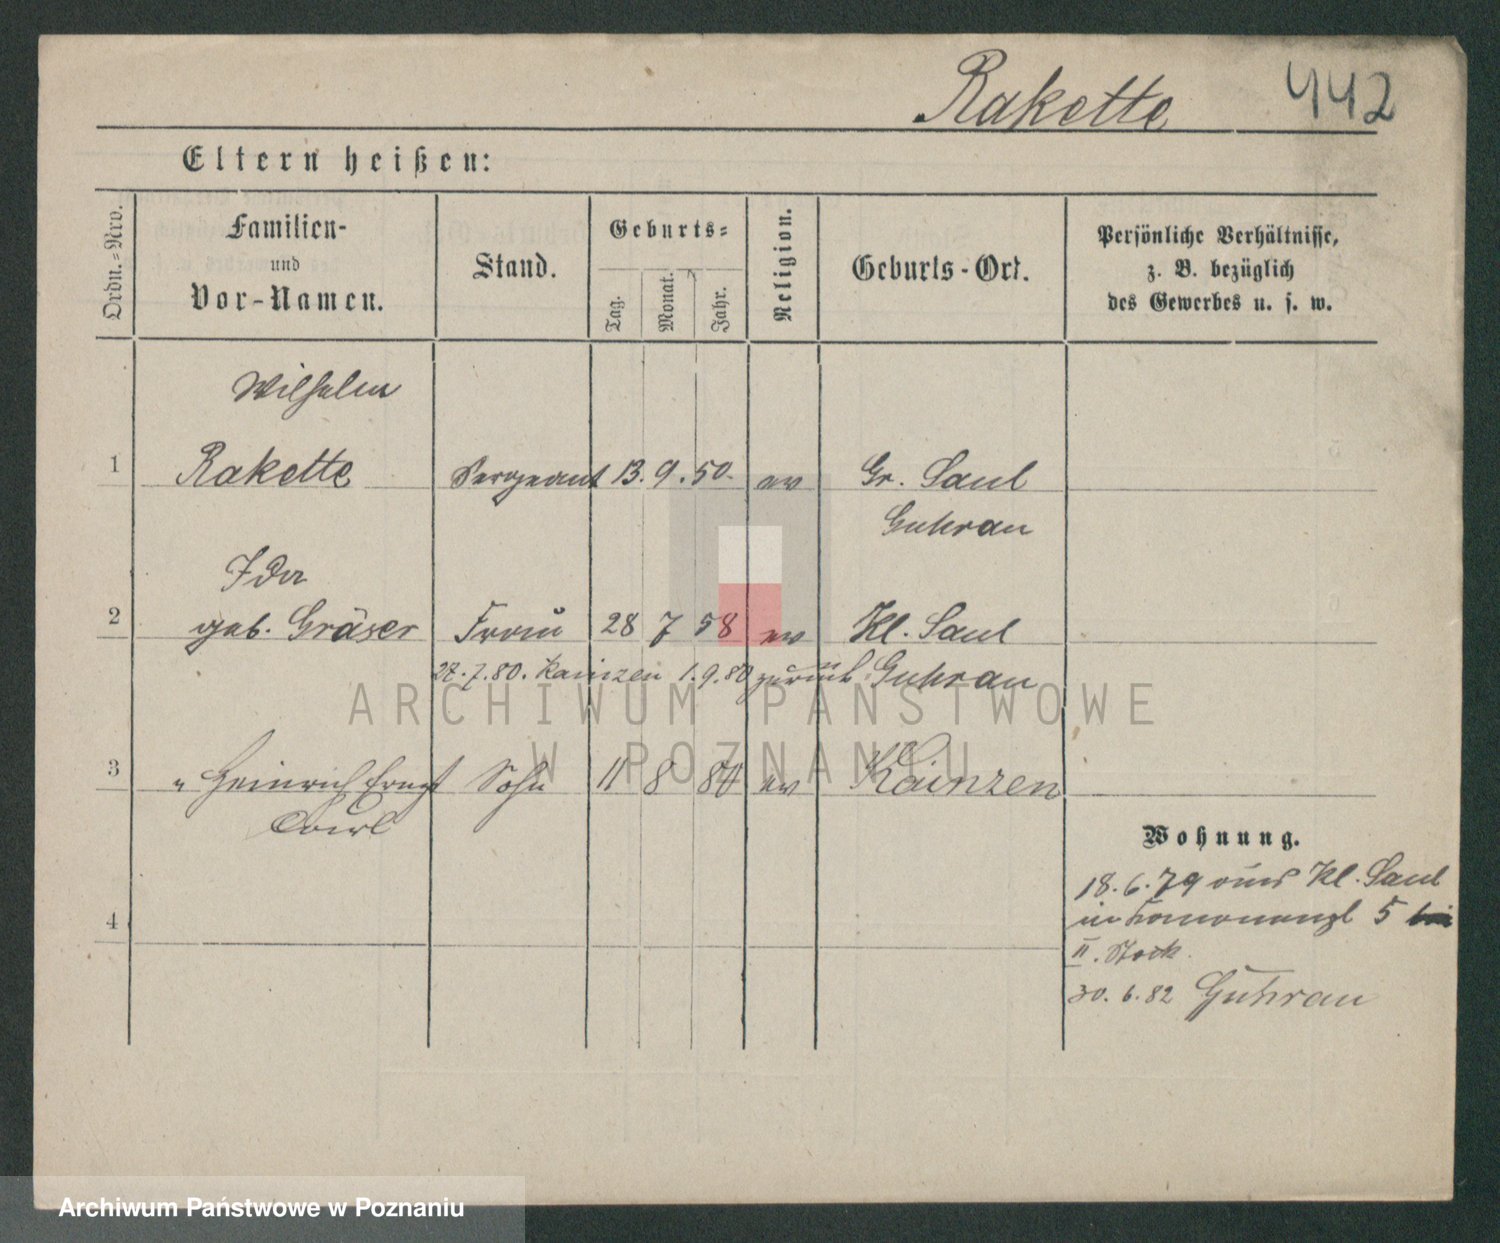 Rakette 442
Eltern heißen:
Ordn.-Nro.
Familien-
und
Vor-Namen.
Stand.
Geburts-
Tag.
Monat.
Jahr.
Religion.
Geburts-Ort.
Persönliche Verhältnisse,
z. B. bezüglich
des Gewerbes u. s. w.
Wilhelm
1 Rakette Sergeant 13. 9. 50. ev Gr. Saul
Guhrau
Ida
2 geb. Gräser Frau 28 7 58 ev Kl. Saul
27.7.80. Kainzen 1.9.80 zurück Guhrau
3 " Heinrich Ernst Sohn 11 8 80 ev Kainzen
Carl
Wohnung.
18.6.79 aus Kl. Saul
5
4
II. Stock.
30. 6. 82 Guhrau
ARCHIWUM PAŃSTWOWE
W POZNANIU
Archiwum Państwowe w Poznaniu